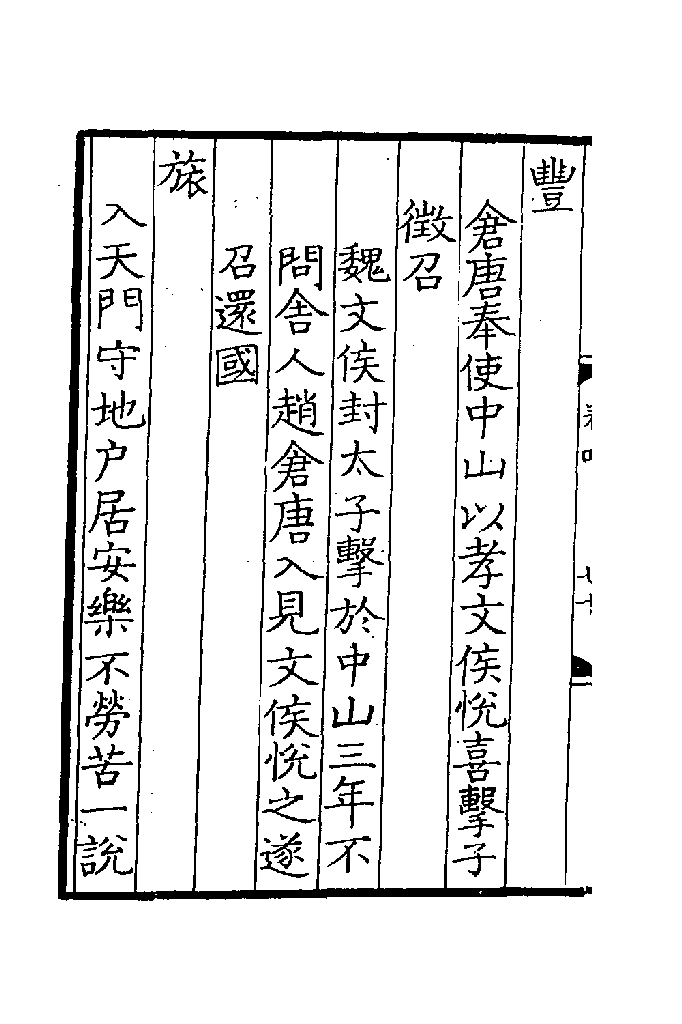 豐
倉唐奉使中山以孝文侯悅喜擊子
徵召
魏文侯封太子擊於中山三年不
問舍人趙倉唐入見文侯悅之遂
召還國
旅
入天門守地户居安樂不勞苦一說